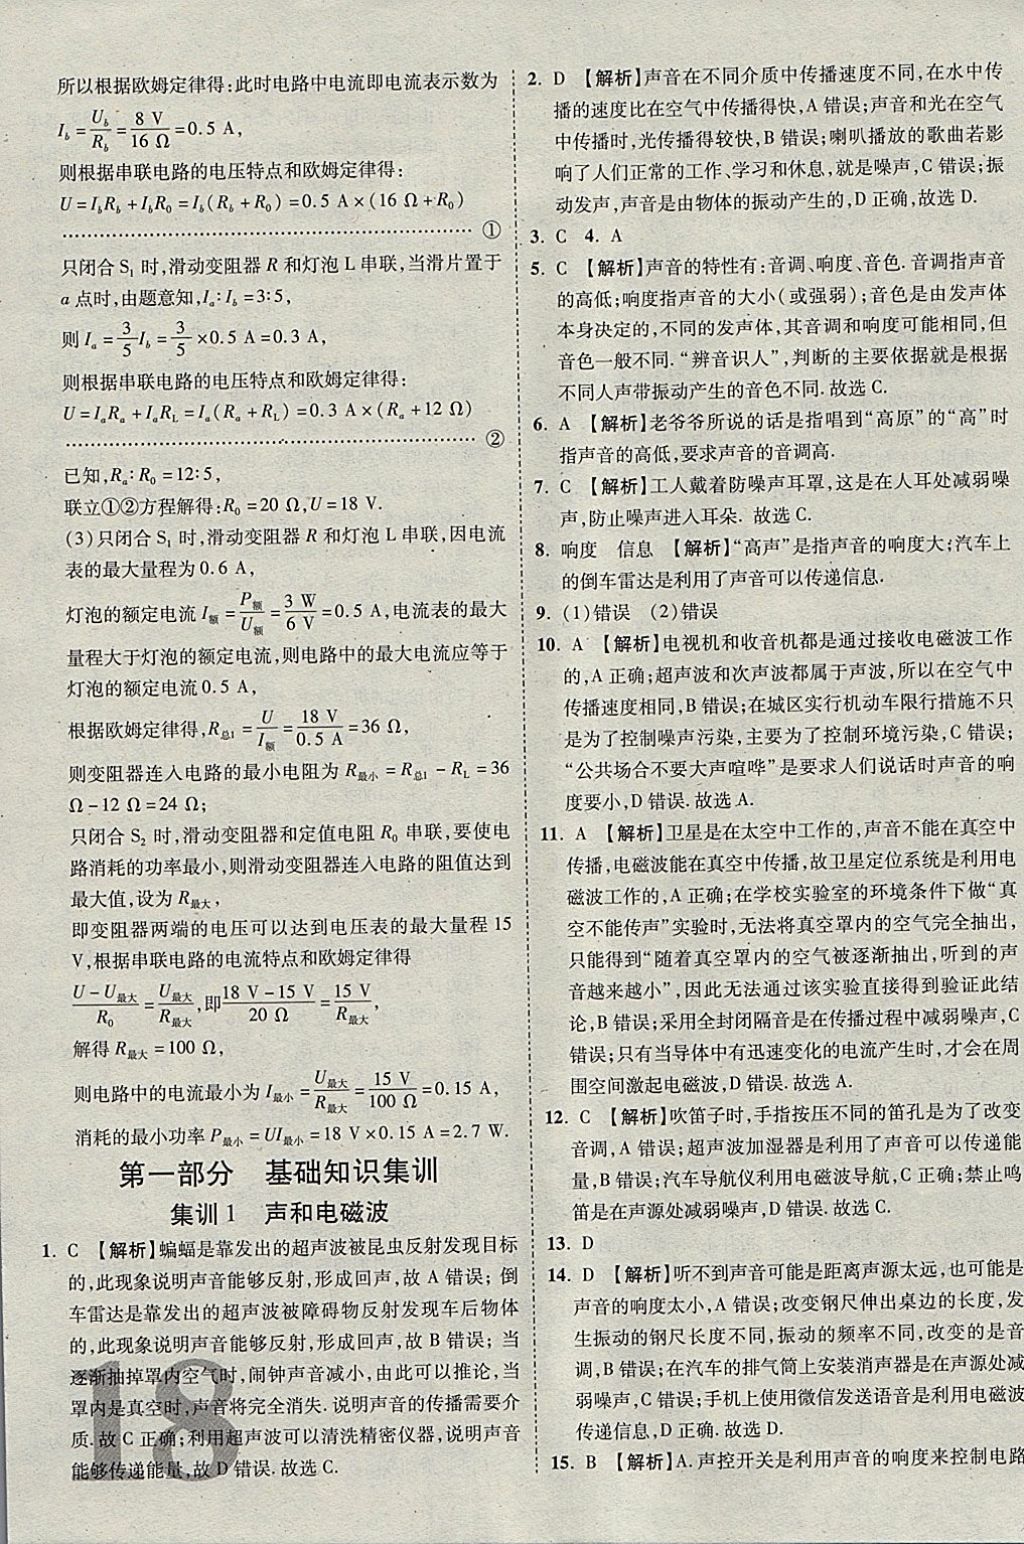 所以根据欧姆定律得:此时电路中电流即电流表示数为
I_b=U_b/R_b=8 V/16 Ω=0.5 A,
则根据串联电路的电压特点和欧姆定律得:
U=I_bR_b+I_bR_0=I_b(R_b+R_0)=0.5 A×(16 Ω+R_0)
………………………………………………… ①
只闭合 S_1 时,滑动变阻器 R 和灯泡 L 串联,当滑片置于
a 点时,由题意知,I_a∶I_b=3∶5,
则 I_a=3/5 I_b=3/5×0.5 A=0.3 A,
则根据串联电路的电压特点和欧姆定律得:
U=I_aR_a+I_aR_L=I_a(R_a+R_L)=0.3 A×(R_a+12 Ω)
………………………………………………… ②
已知,R_a∶R_0=12∶5,
联立①②方程解得:R_0=20 Ω,U=18 V.
(3)只闭合 S_1 时,滑动变阻器 R 和灯泡 L 串联,因电流
表的最大量程为 0.6 A,
灯泡的额定电流 I_额=P_额/U_额=3 W/6 V=0.5 A,电流表的最大
量程大于灯泡的额定电流,则电路中的最大电流应等于
灯泡的额定电流 0.5 A,
根据欧姆定律得,R_总1=U/I_额=18 V/0.5 A=36 Ω,
则变阻器连入电路的最小电阻为 R_最小=R_总1-R_L=36
Ω-12 Ω=24 Ω;
只闭合 S_2 时,滑动变阻器和定值电阻 R_0 串联,要使电
路消耗的功率最小,则滑动变阻器连入电路的阻值达到
最大值,设为 R_最大,
即变阻器两端的电压可以达到电压表的最大量程 15
V,根据串联电路的电流特点和欧姆定律得
(U-U_最大)/R_0=U_最大/R_最大,即(18 V-15 V)/20 Ω=15 V/R_最大,
解得 R_最大=100 Ω,
则电路中的电流最小为 I_最小=U_最大/R_最大=15 V/100 Ω=0.15 A,
消耗的最小功率 P_最小=UI_最小=18 V×0.15 A=2.7 W.
第一部分 基础知识集训
集训 1 声和电磁波
1. C 【解析】蝙蝠是靠发出的超声波被昆虫反射发现目标
的,此现象说明声音能够反射,形成回声,故 A 错误;倒
车雷达是靠发出的超声波被障碍物反射发现车后物体
的,此现象说明声音能够反射,形成回声,故 B 错误;当
逐渐抽掉罩内空气时,闹钟声音减小,由此可以推论,当
罩内是真空时,声音将完全消失.说明声音的传播需要介
质.故 C 正确;利用超声波可以清洗精密仪器,说明声音
能够传递能量,故 D 错误.故选 C.
18
2. D 【解析】声音在不同介质中传播速度不同,在水中传
播的速度比在空气中传播得快,A 错误;声音和光在空气
中传播时,光传播得较快,B 错误;喇叭播放的歌曲若影
响了人们正常的工作、学习和休息,就是噪声,C 错误;振
动发声,声音是由物体的振动产生的,D 正确,故选 D.
3. C 4. A
5. C 【解析】声音的特性有:音调、响度、音色.音调指声音
的高低;响度指声音的大小(或强弱);音色是由发声体
本身决定的,不同的发声体,其音调和响度可能相同,但
音色一般不同.“辨音识人”,判断的主要依据就是根据
不同人声带振动产生的音色不同.故选 C.
6. A 【解析】老爷爷所说的话是指唱到“高原”的“高”时
指声音的高低,要求声音的音调高.
7. C 【解析】工人戴着防噪声耳罩,这是在人耳处减弱噪
声,防止噪声进入耳朵. 故选 C.
8. 响度 信息 【解析】“高声”是指声音的响度大;汽车上
的倒车雷达是利用了声音可以传递信息.
9. (1)错误 (2)错误
10. A 【解析】电视机和收音机都是通过接收电磁波工作
的,A 正确;超声波和次声波都属于声波,所以在空气中
传播速度相同,B 错误;在城区实行机动车限行措施不只
是为了控制噪声污染,主要为了控制环境污染,C 错误;
“公共场合不要大声喧哗”是要求人们说话时声音的响
度要小,D 错误.故选 A.
11. A 【解析】卫星是在太空中工作的,声音不能在真空中
传播,电磁波能在真空中传播,故卫星定位系统是利用电
磁波工作的,A 正确;在学校实验室的环境条件下做“真
空不能传声”实验时,无法将真空罩内的空气完全抽出,
但可听到“随着真空罩内的空气被逐渐抽出,听到的声
音越来越小”,因此无法通过该实验直接得出此结
论,B 错误;采用全封闭隔音是在传播过程中减弱噪声,C
错误;只有当导体中有迅速变化的电流产生时,才会在周
围空间激起电磁波,D 错误.故选 A.
12. C 【解析】吹笛子时,手指按压不同的笛孔是为了改变
音调,A 错误;超声波加湿器是利用了声音可以传递能
量,B 错误;汽车导航仪利用电磁波导航,C 正确;禁止鸣
笛是在声源处减弱噪声,D 错误.故选 C.
13. D
14. D 【解析】听不到声音可能是距离声源太远,也可能是
声音的响度太小,A 错误;改变钢尺伸出桌边的长度,发
生振动的钢尺长度不同,振动的频率不同,改变的是音
调,B 错误;在汽车的排气筒上安装消声器是在声源处减
弱噪声,C 错误;手机上使用微信发送语音是利用电磁波
传递信息,D 正确.故选 D.
15. B 【解析】A.声控开关是利用声音的响度来控制电路